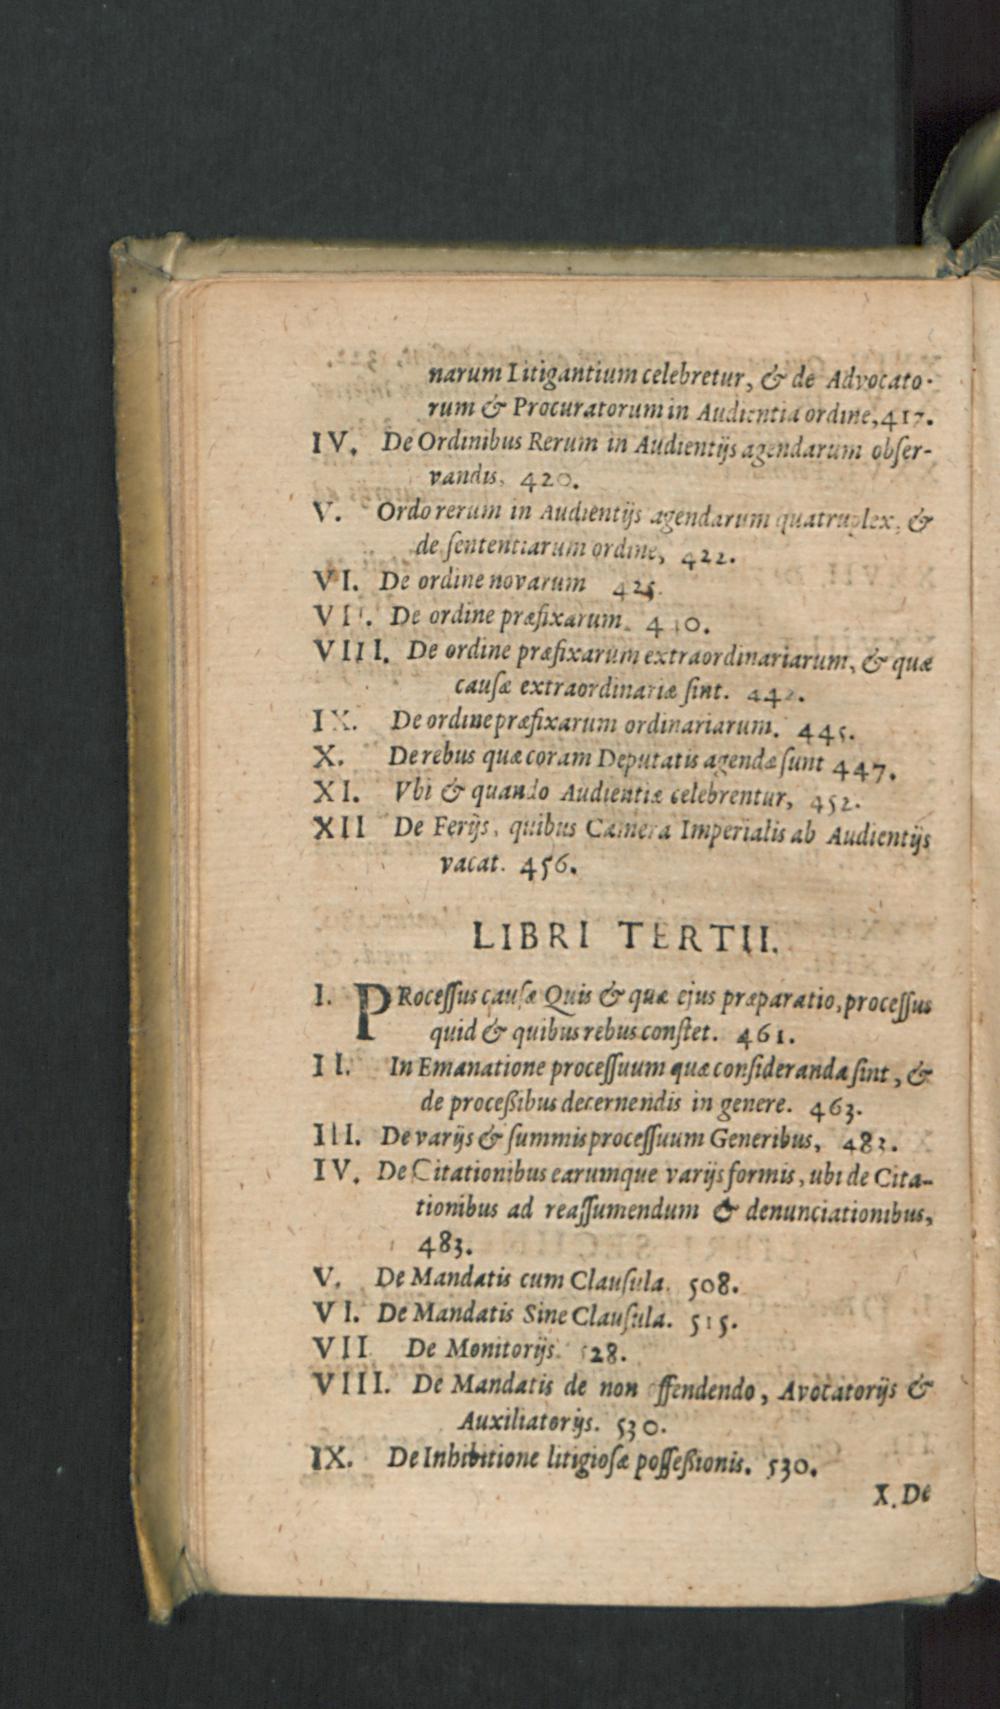 narum Litigantium celebretur, & de Advocato-
rum & Procuratorum in Audientia ordine, 417.
IV. De Ordinibus Rerum in Audientijs agendarum obſer-
vandis, 420.
V. Ordo rerum in Audientijs agendarum quatruplex, &
de ſententiarum ordine, 422.
VI. De ordine novarum 425.
VII. De ordine præfixarum.
VIII. De ordine præfixarum extraordinariarum, & quæ
cauſæ extraordinariæ ſint.
IX. De ordine præfixarum ordinariarum. 445.
X. De rebus quæ coram Deputatis agendæ ſunt 447.
XI. Vbi & quando Audientiæ celebrentur, 452.
XII De Ferijs, quibus Camera Imperialis ab Audientijs
vacat. 456.
LIBRI TERTII.
I. PRoceſſus cauſæ Quis & quæ ejus præparatio, proceſſus
quid & quibus rebus conſtet. 461.
II. In Emanatione proceſſuum quæ conſideranda ſint, &
de proceßibus decernendis in genere. 463.
III. De varijs & ſummis proceſſuum Generibus, 483.
IV. De Citationibus earumque varijs formis, ubi de Cita-
tionibus ad reaſſumendum & denunciationibus,
483.
V. De Mandatis cum Clauſula. 508.
VI. De Mandatis Sine Clauſula. 515.
VII De Monitorijs. 528.
VIII. De Mandatis de non offendendo, Avocatorijs &
Auxiliatorijs. 530.
IX. De Inhibitione litigioſæ poſſeßionis. 530.
X. De